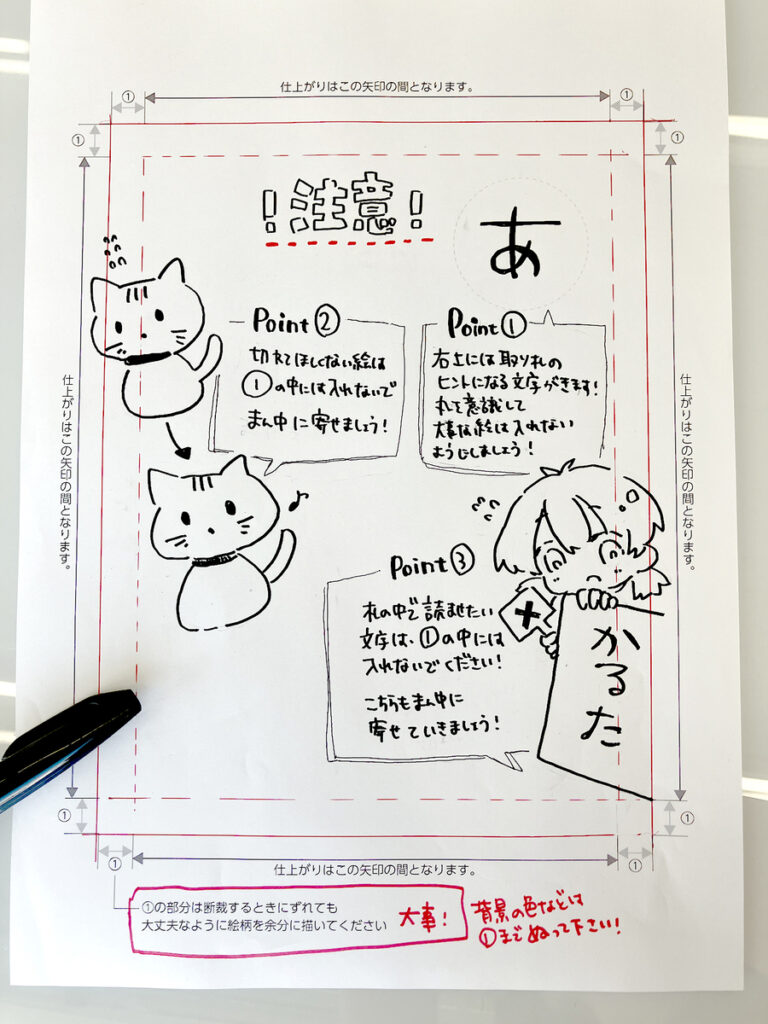 仕上がりはこの矢印の間となります。
①
①
①
①
！注意！
あ
Point①
右上には取り札の
ヒントになる文字がきます！
丸を意識して
大事な絵は入れない
ようにしましょう！
Point②
切れてほしくない絵は
①の中には入れないで
まん中に寄せましょう！
仕上がりはこの矢印の間となります。
仕上がりはこの矢印の間となります。
Point③
札の中で読ませたい
文字は、①の中には
入れないでください！
こちらもまん中に
寄せていきましょう！
かるた
①
①
①
①
仕上がりはこの矢印の間となります。
①の部分は断裁するときにずれても
大丈夫なように絵柄を余分に描いてください
大事！
背景の色などは
①までぬって下さい！